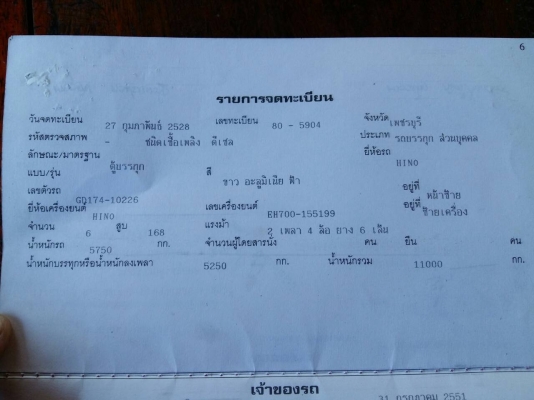 6
รายการจดทะเบียน
วันจดทะเบียน 27 กุมภาพันธ์ 2528 เลขทะเบียน 80 - 5904 จังหวัด เพชรบุรี
รหัสตรวจสภาพ - ชนิดเชื้อเพลิง ดีเซล ประเภท รถบรรทุก ส่วนบุคคล
ลักษณะ/มาตรฐาน ตู้บรรทุก ยี่ห้อรถ HINO
แบบ/รุ่น สี ขาว อะลูมิเนียม ฟ้า
เลขตัวรถ GD174-10226 อยู่ที่ หน้าซ้าย
ยี่ห้อเครื่องยนต์ HINO เลขเครื่องยนต์ EH700-155199 อยู่ที่ ซ้ายเครื่อง
จำนวน 6 สูบ 168 แรงม้า 2 เพลา 4 ล้อ ยาง 6 เส้น
น้ำหนักรถ 5750 กก. จำนวนผู้โดยสารนั่ง คน ยืน คน
น้ำหนักบรรทุกหรือน้ำหนักลงเพลา 5250 กก. น้ำหนักรวม 11000 กก.
เจ้าของรถ
31 กรกฎาคม 2551